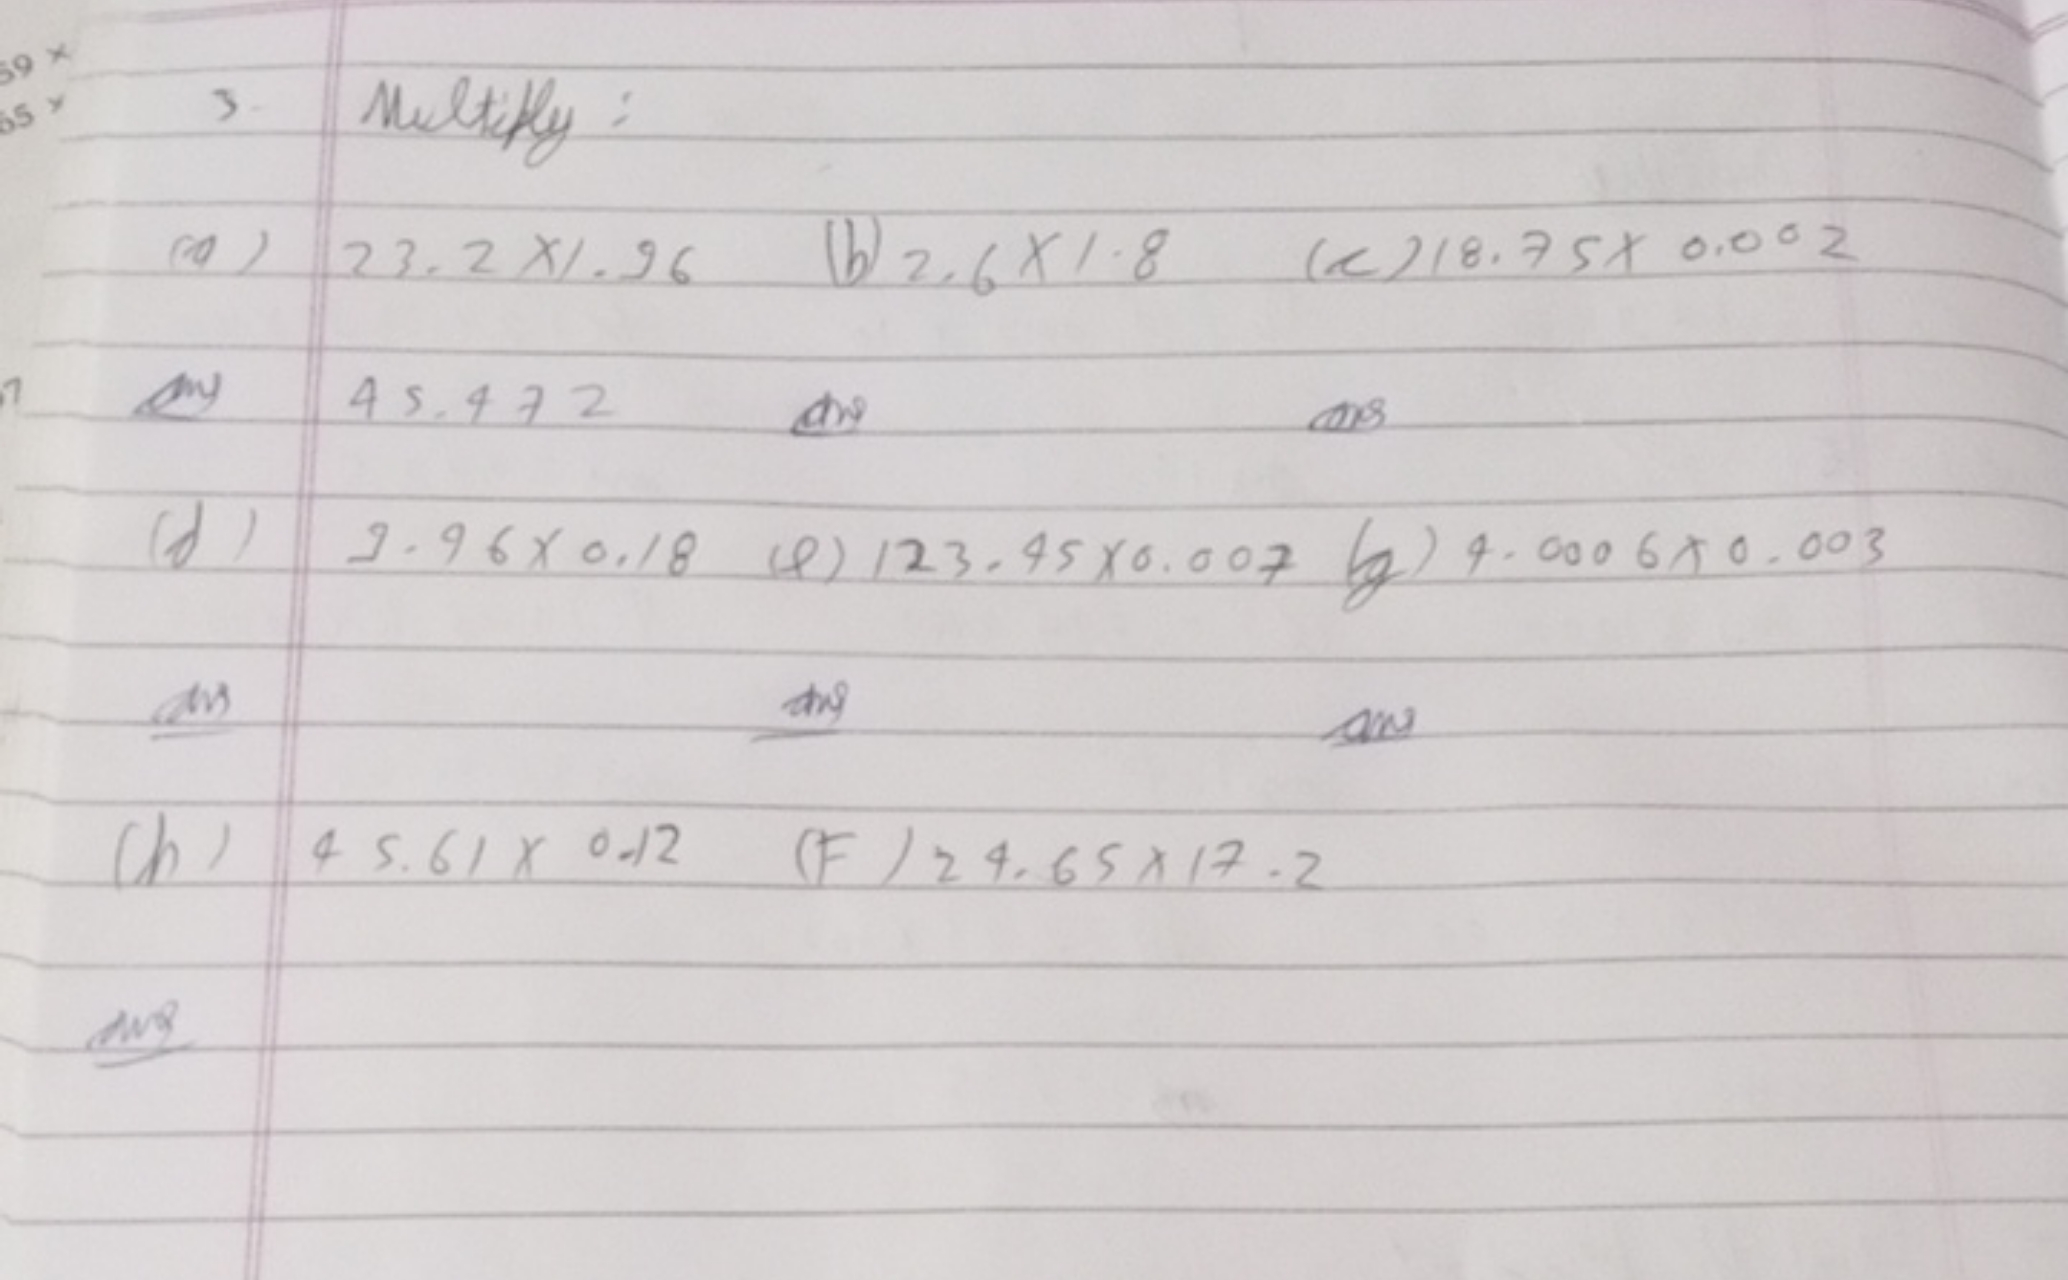 59 ×
65 ×
3. Multiply :
(a) 23.2 X 1.96 (b) 2.6 X 1.8 (c) 18.75 X 0.002
ans 45.472 ans ans
(d) 9.96 X 0.18 (e) 123.45 X 0.007 (g) 4.0006 X 0.003
ans ans ans
(h) 45.61 X 0.12 (F) 24.65 X 17.2
ans